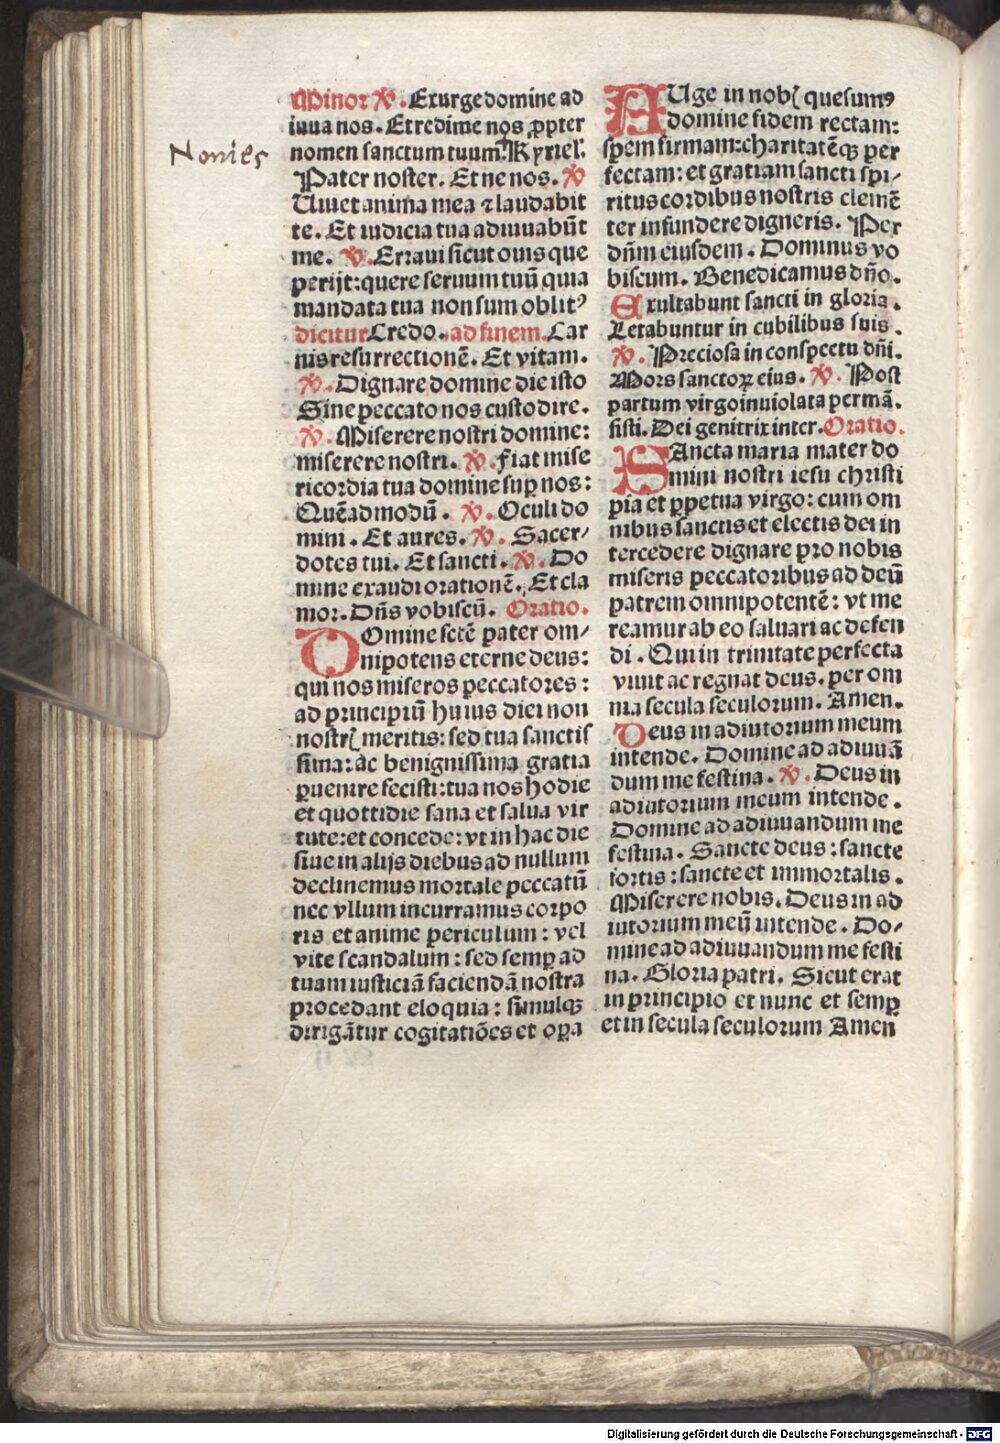 Nonies
Minor ℣. Exurge domine ad
iuua nos. Et redime nos ꝓpter
nomen sanctum tuum. Kyriel'.
Pater noster. Et ne nos. ℣
Uiuet anima mea ⁊ laudabit
te. Et iudicia tua adiuuabūt
me. ℣. Erraui sicut ouis que
perijt: quere seruum tuū quia
mandata tua non sum oblitꝰ
dicitur Credo. ad finem. Car
nis resurrectionē. Et vitam.
℣. Dignare domine die isto
Sine peccato nos custodire.
℣. Miserere nostri domine:
miserere nostri. ℣. Fiat mise
ricordia tua domine suꝑ nos:
Quēadmodū. ℣. Oculi do
mini. Et aures. ℣. Sacer/
dotes tui. Et sancti. ℣. Do
mine exaudi orationē. Et cla
mor. Dn̄s vobiscū. Oratio.
DOmine sctē pater om/
nipotens eterne deus:
qui nos miseros peccatores:
ad principiū huius diei non
nostrꝭ meritis: sed tua sanctis
sima: ac benignissima gratia
ꝑuenire fecisti: tua nos hodie
et quottidie sana et salua vir
tute: et concede: vt in hac die
siue in alijs diebus ad nullum
declinemus mortale peccatū
nec vllum incurramus corpo
ris et anime periculum: vel
vite scandalum: sed semꝑ ad
tuam iusticiā faciendā nostra
procedant eloquia: simulqꝫ
dirigātur cogitatiōes et oꝑa
AUge in nobꝭ quesumꝰ
domine fidem rectam:
spem firmam: charitatēqꝫ per
fectam: et gratiam sancti spi/
ritus cordibus nostris clemē
ter infundere digneris. Per
dn̄m eiusdem. Dominus vo
biscum. Benedicamus dn̄o.
Exultabunt sancti in gloria.
Letabuntur in cubilibus suis.
℣. Preciosa in conspectu dn̄i.
Mors sanctoꝝ eius. ℣. Post
partum virgo inuiolata permā.
sisti. Dei genitrix inter. Oratio.
SAncta maria mater do
mini nostri iesu christi
pia et ꝑpetua virgo: cum om
nibus sanctis et electis dei in
tercedere dignare pro nobis
miseris peccatoribus ad deū
patrem omnipotentē: vt me
reamur ab eo saluari ac defen
di. Qui in trinitate perfecta
viuit ac regnat deus. per om
nia secula seculorum. Amen.
Deus in adiutorium meum
intende. Domine ad adiuuā
dum me festina. ℣. Deus in
adiutorium meum intende.
Domine ad adiuuandum me
festina. Sancte deus: sancte
fortis: sancte et immortalis.
Miserere nobis. Deus in ad
iutorium meū intende. Do/
mine ad adiuuandum me festi
na. Gloria patri. Sicut erat
in principio et nunc et semꝑ
et in secula seculorum Amen
Digitalisierung gefördert durch die Deutsche Forschungsgemeinschaft - DFG